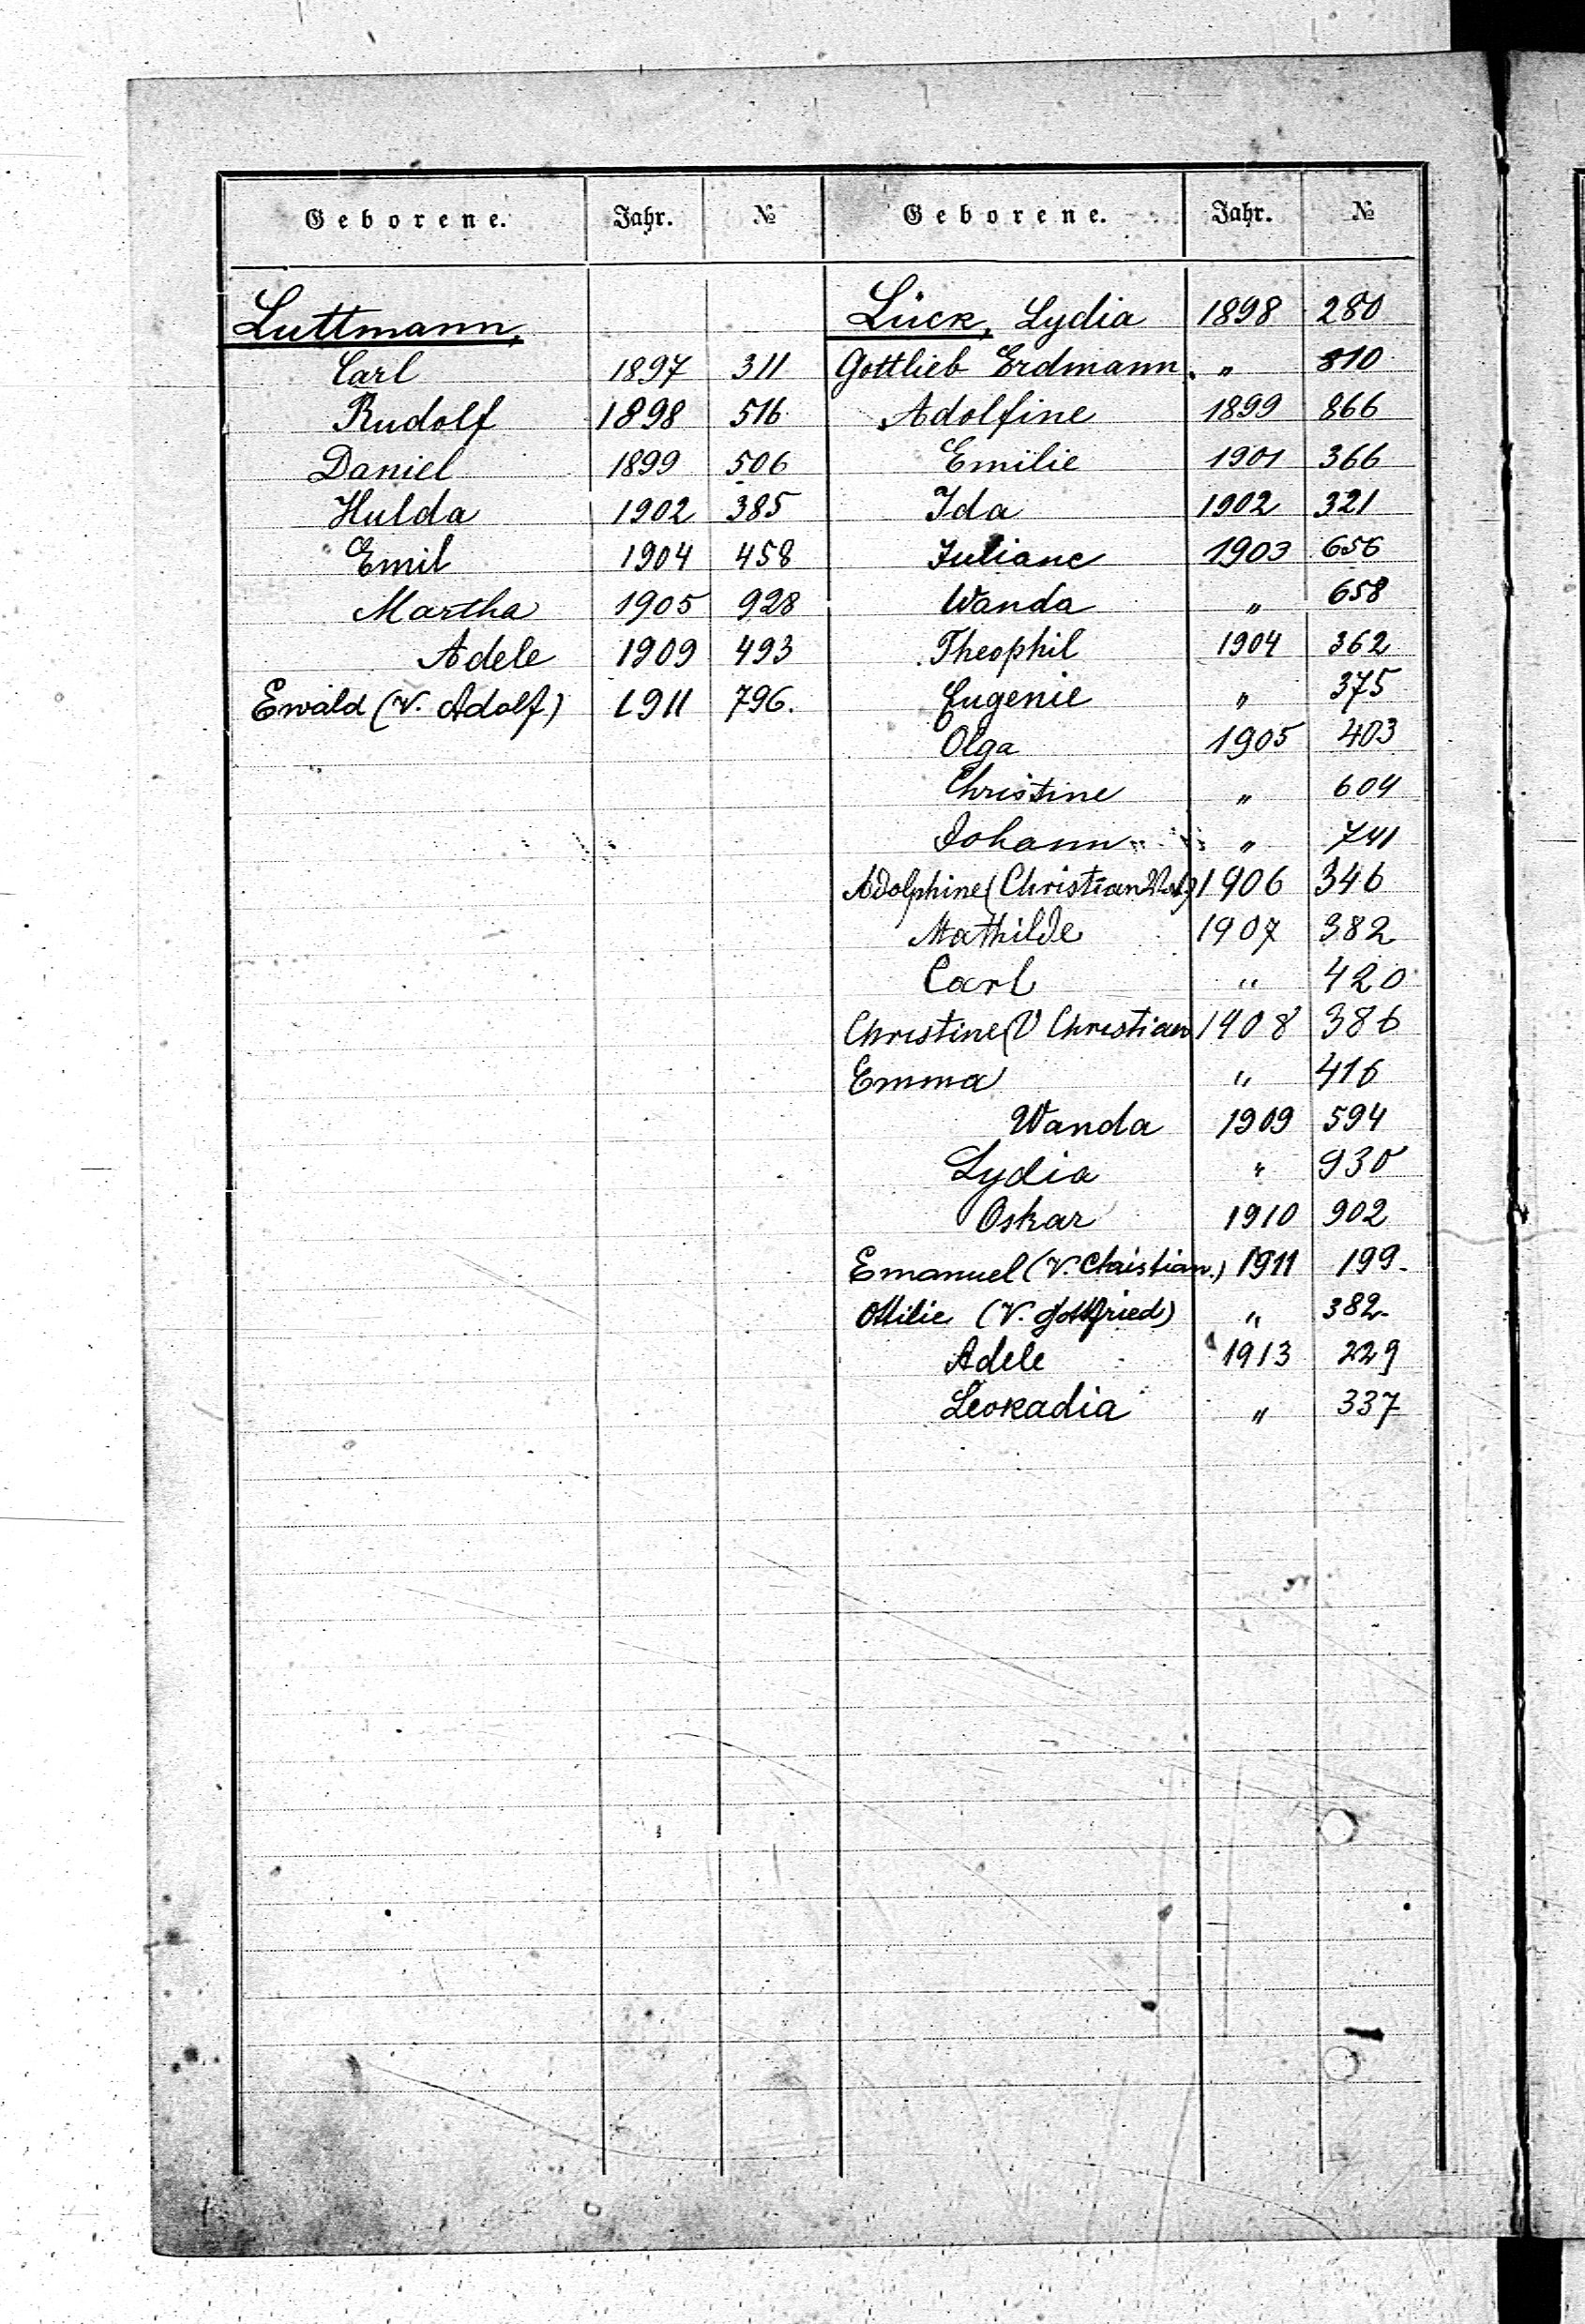 Geborene. Jahr. №
Luttmann,
Carl 1897 311
Rudolf 1898 516
Daniel 1899 506
Hulda 1902 385
Emil 1904 458
Martha 1905 928
Adele 1909 493
Ewald (V. Adolf) 1911 796.
Geborene. Jahr. №
Lück, Lydia 1898 280
Gottlieb Erdmann. " 810
Adolfine 1899 866
Emilie 1901 366
Ida 1902 321
Juliane 1903 656
Wanda " 658
Theophil 1904 362
Eugenie " 375
Olga 1905 403
Christine " 604
Johann " 741
Adolphine (Christian 1906 346
Mathilde 1907 382
Carl " 420
Christine (V Christian 1908 386
Emma " 416
Wanda 1909 594
Lydia " 930
Oskar 1910 902
Emanuel (V. Christian.) 1911 199.
Ottilie (V. Gottfried) " 382.
Adele 1913 229
Leokadia " 337